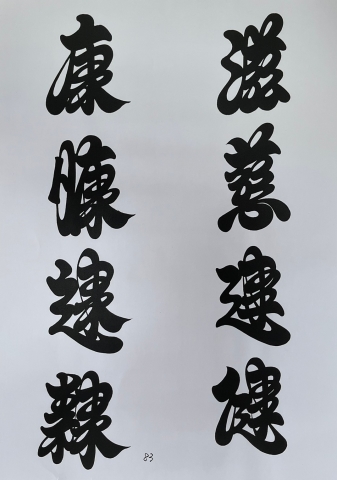 滋慈建健
康慷逮隸
83